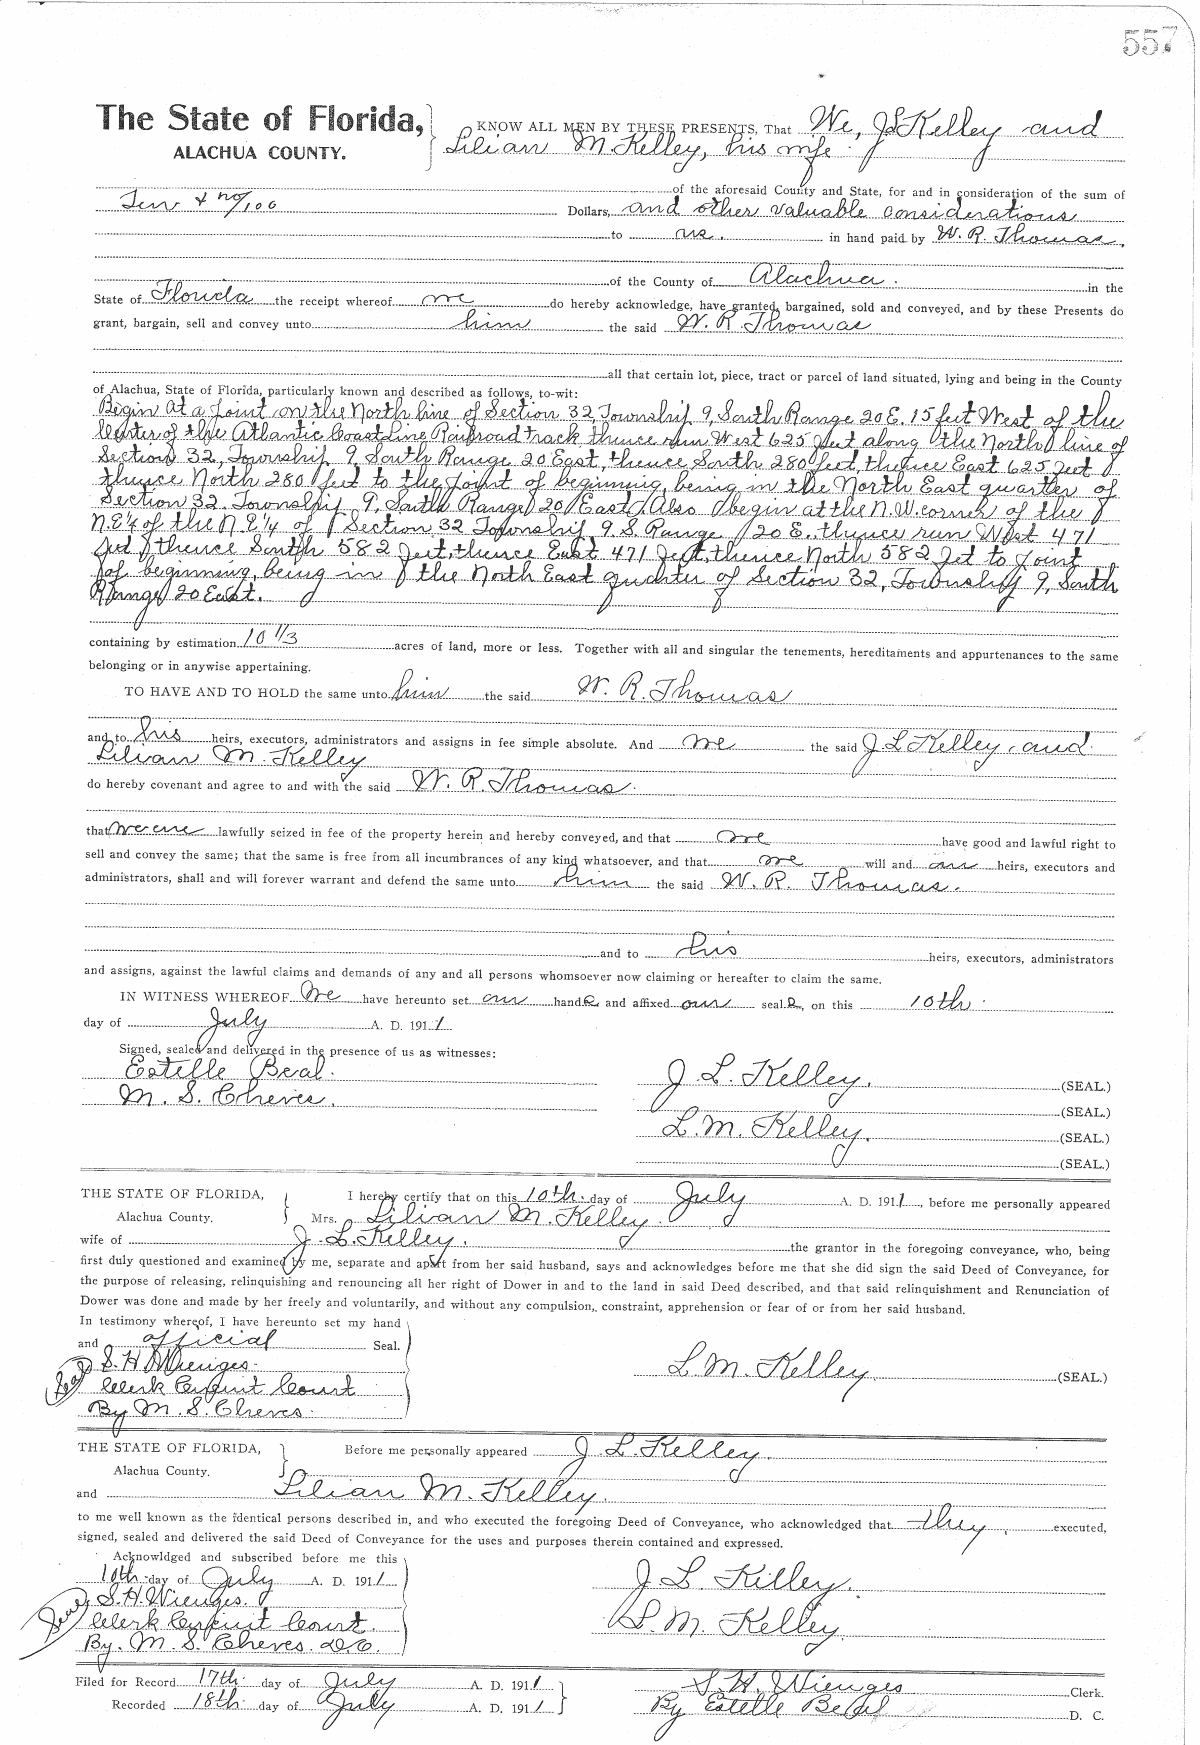 557
The State of Florida,
ALACHUA COUNTY.
KNOW ALL MEN BY THESE PRESENTS, That We, J L Kelley and
Lilian M. Kelley, his wife
of the aforesaid County and State, for and in consideration of the sum of
Ten & no/100 Dollars, and other valuable considerations
to us. in hand paid by W. R. Thomas.
of the County of Alachua. in the
State of Florida the receipt whereof we do hereby acknowledge, have granted, bargained, sold and conveyed, and by these Presents do
grant, bargain, sell and convey unto him the said W. R Thomas
all that certain lot, piece, tract or parcel of land situated, lying and being in the County
of Alachua, State of Florida, particularly known and described as follows, to-wit:
Begin at a point on the North line of Section 32, Township 9, South Range 20 E. 15 feet West of the
Center of the Atlantic Coast Line Railroad track thence run West 625 feet along the North line of
Section 32, Township 9, South Range 20 East, thence South 280 feet, thence East 625 feet
thence North 280 feet to the point of beginning, being in the North East quarter of
Section 32, Township 9, South Range 20 East. Also begin at the N.W. corner of the
N.E¼ of the N.E¼ of Section 32 Township 9 S. Range 20 E. thence run West 471
feet thence South 582 feet, thence East 471 feet, thence North 582 fet to point
of beginning, being in the North East quarter of Section 32, Township 9, South
Range 20 East.
containing by estimation 10 1/3 acres of land, more or less. Together with all and singular the tenements, hereditaments and appurtenances to the same
belonging or in anywise appertaining.
TO HAVE AND TO HOLD the same unto him the said W. R. Thomas
and to his heirs, executors, administrators and assigns in fee simple absolute. And we the said J L Kelley, and
Lilian M. Kelley
do hereby covenant and agree to and with the said W. R. Thomas.
that we are lawfully seized in fee of the property herein and hereby conveyed, and that we have good and lawful right to
sell and convey the same; that the same is free from all incumbrances of any kind whatsoever, and that we will and our heirs, executors and
administrators, shall and will forever warrant and defend the same unto him the said W. R. Thomas.
and to his heirs, executors, administrators
and assigns, against the lawful claims and demands of any and all persons whomsoever now claiming or hereafter to claim the same.
IN WITNESS WHEREOF We have hereunto set our hands and affixed our seals, on this 10th.
day of July A. D. 1911
Signed, sealed and delivered in the presence of us as witnesses:
Estelle Beal.
M. S. Cheves.
J. L. Kelley. (SEAL.)
(SEAL.)
L. M. Kelley. (SEAL.)
(SEAL.)
THE STATE OF FLORIDA,
Alachua County.
I hereby certify that on this 10th. day of July A. D. 1911, before me personally appeared
Mrs. Lilian M. Kelley
wife of J. L. Kelley. the grantor in the foregoing conveyance, who, being
first duly questioned and examined by me, separate and apart from her said husband, says and acknowledges before me that she did sign the said Deed of Conveyance, for
the purpose of releasing, relinquishing and renouncing all her right of Dower in and to the land in said Deed described, and that said relinquishment and Renunciation of
Dower was done and made by her freely and voluntarily, and without any compulsion, constraint, apprehension or fear of or from her said husband.
In testimony whereof, I have hereunto set my hand
and official Seal.
S. H. Wienges.
Clerk Circuit Court
By M. S. Cheves.
L. M. Kelley (SEAL.)
THE STATE OF FLORIDA,
Alachua County.
Before me personally appeared J. L. Kelley.
and Lilian M. Kelley.
to me well known as the identical persons described in, and who executed the foregoing Deed of Conveyance, who acknowledged that they executed,
signed, sealed and delivered the said Deed of Conveyance for the uses and purposes therein contained and expressed.
Acknowldged and subscribed before me this
10th day of July A. D. 1911
(Seal) S. H. Wienges.
Clerk Circuit Court.
By. M. S. Cheves. D.C.
J. L. Kelley.
L. M. Kelley.
Filed for Record 17th. day of July A. D. 1911
Recorded 18th. day of July A. D. 1911
S. H. Wienges Clerk.
By Estelle Beal D. C.